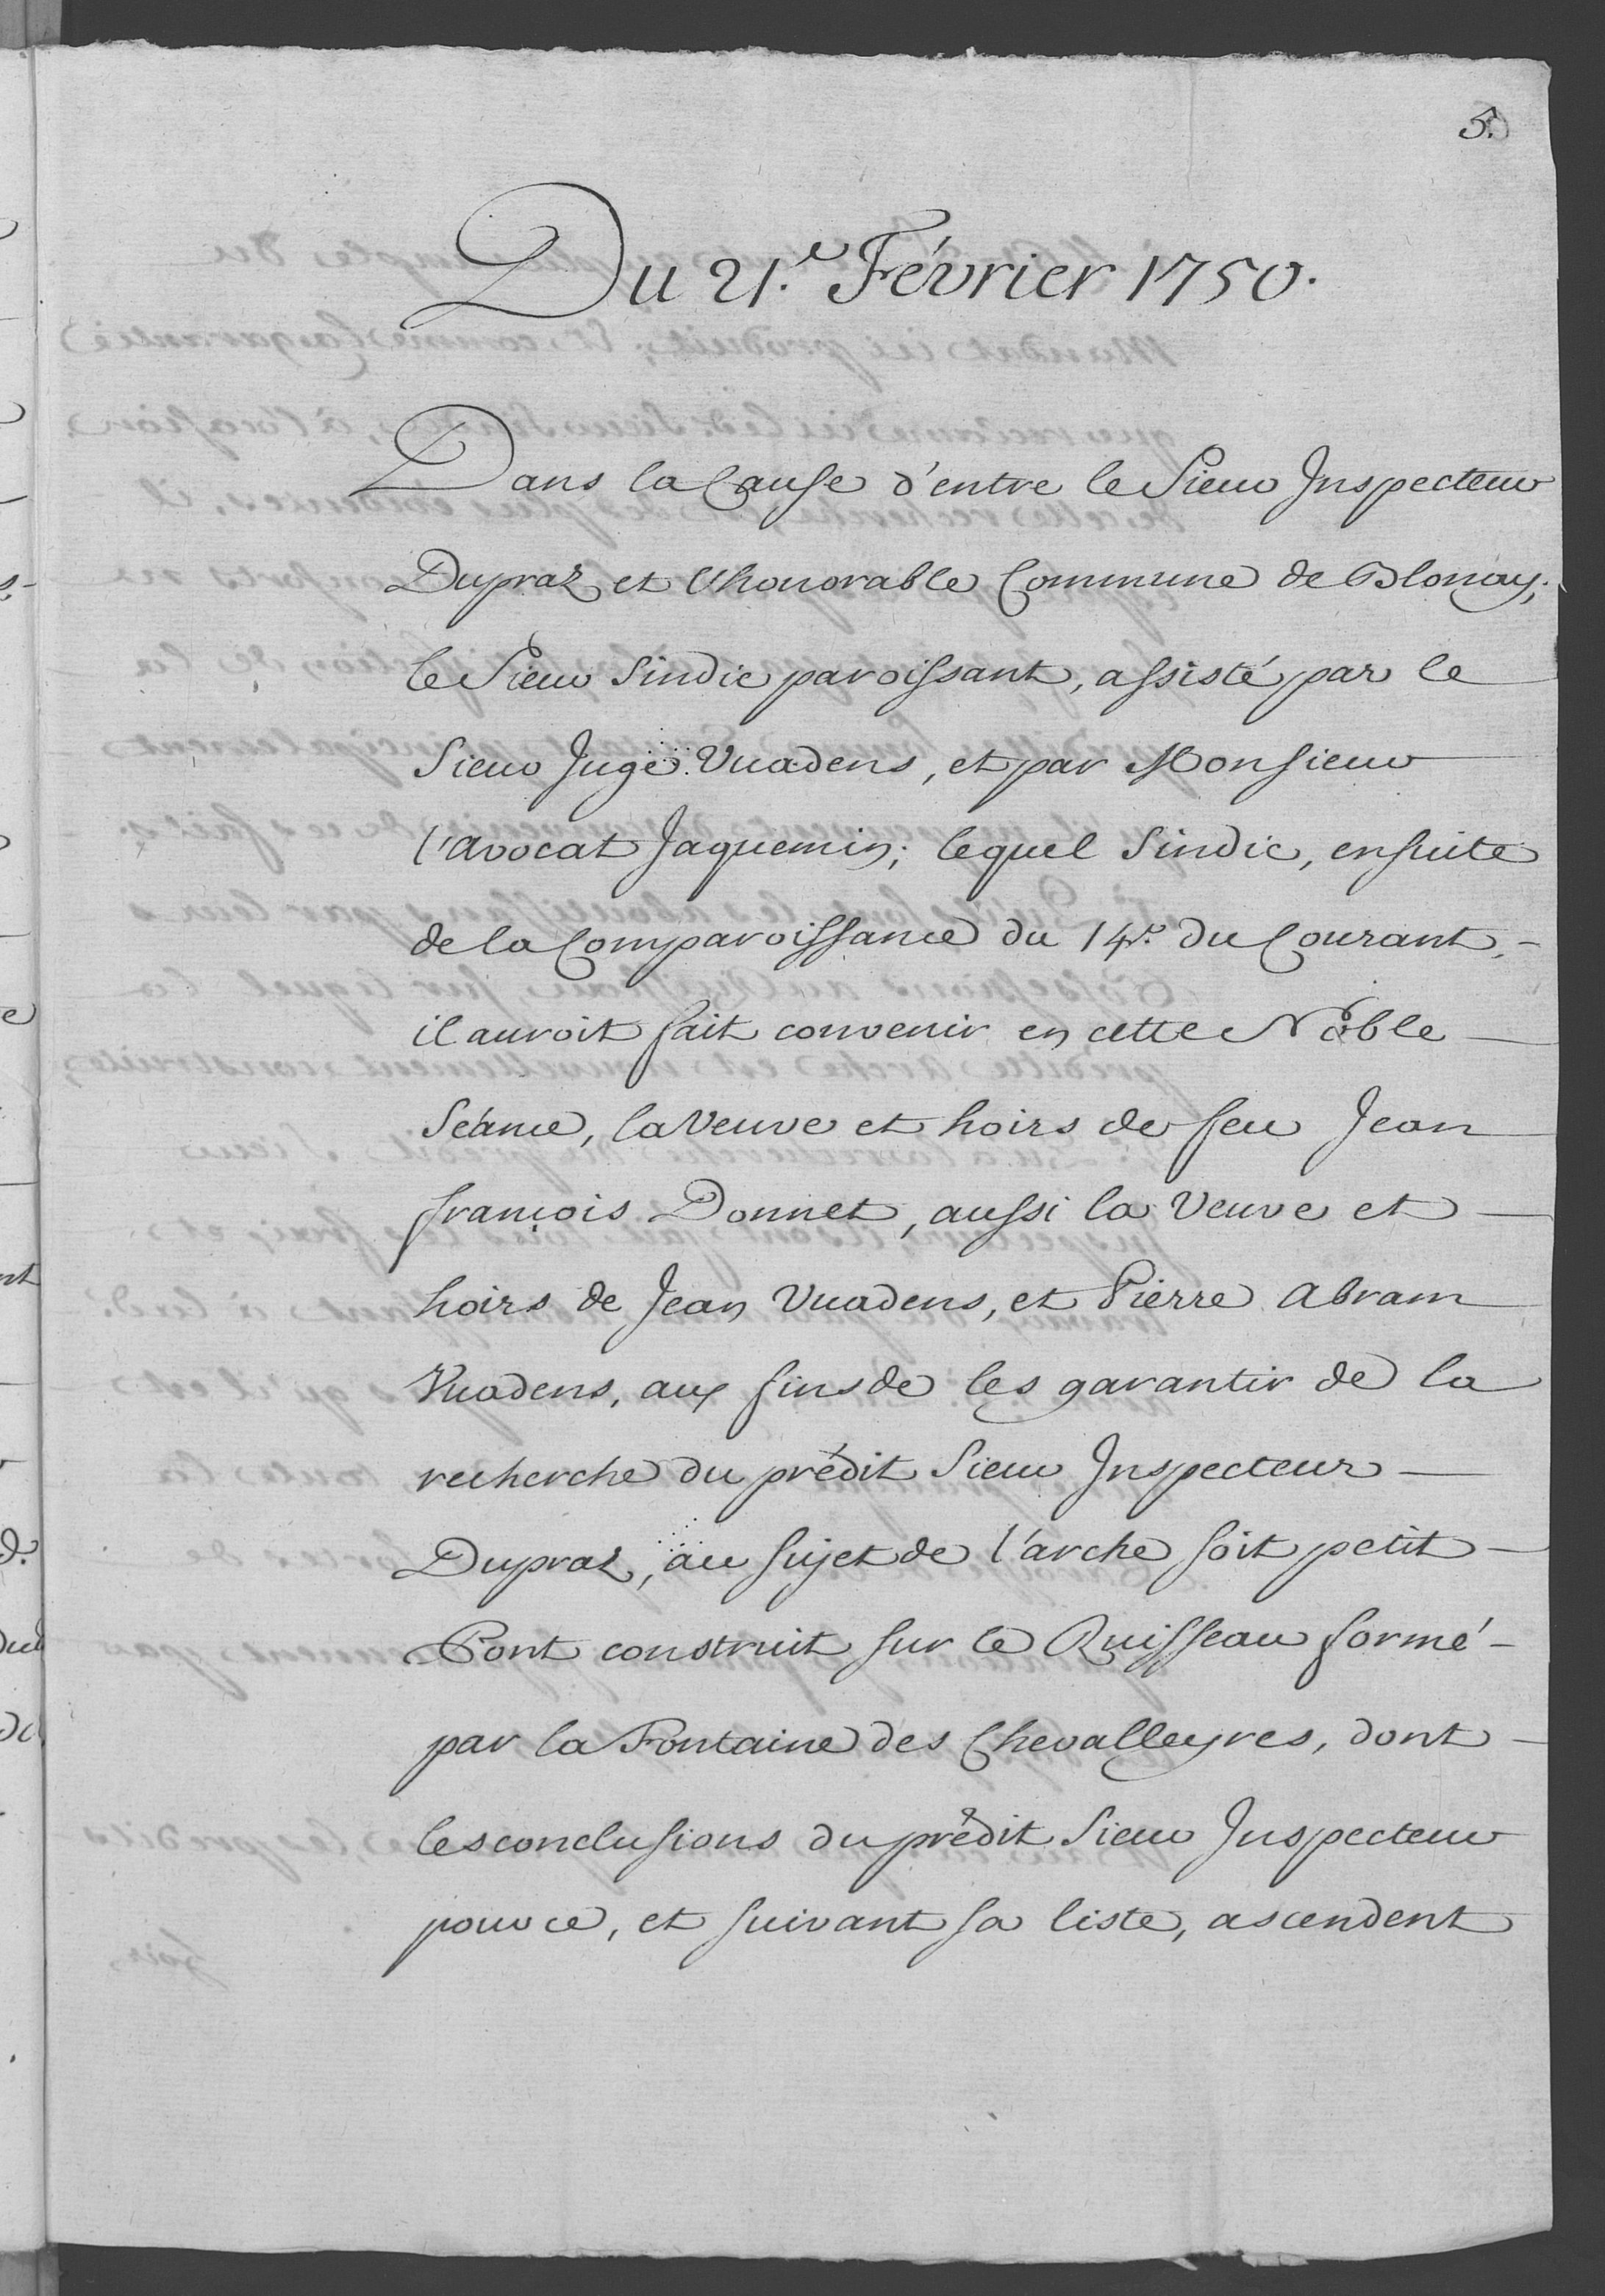 5.
Du 21.e Février 1750.
Dans la Cause d'entre le Sieur Inspecteur
Dupraz et l'honorable Commune de Blonay;
le Sieur Sindic paroissant, assisté par le
Sieur Juge Vuadens, et par Monsieur
l'Avocat Jaquemin; lequel Sindic, ensuite
de la Comparoissance du 14.e du Courant, -
il auroit fait convenir en cette Noble -
Séance, la Veuve et hoirs de feu Jean
françois Donnet, aussi la Veuve et -
hoirs de Jean Vuadens, et Pierre Abram
Vuadens, aux fins de les garantir de la
recherche du prédit Sieur Inspecteur -
Dupraz, au sujet de l'arche soit petit -
Pont construit sur le Ruisseau formé -
par la Fontaine des Chevalleyres, dont -
les conclusions du prédit Sieur Inspecteur
pour ce, et suivant sa liste, ascendent